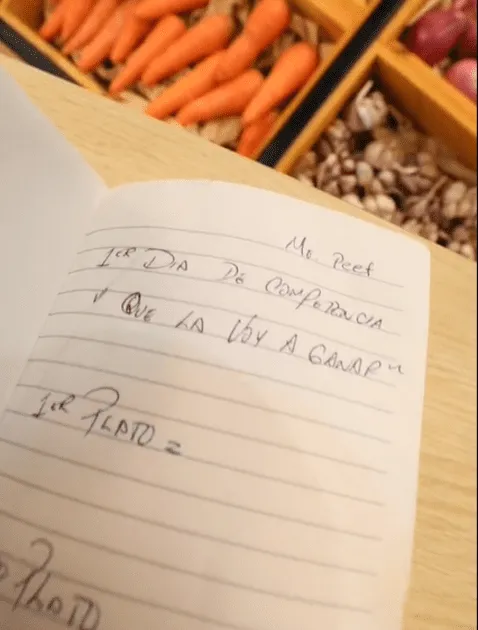 Mc Peef
1ER DIA DE COMPETENCIA
" QUE LA VOY A GANAR "
1ER PLATO =
PLATO